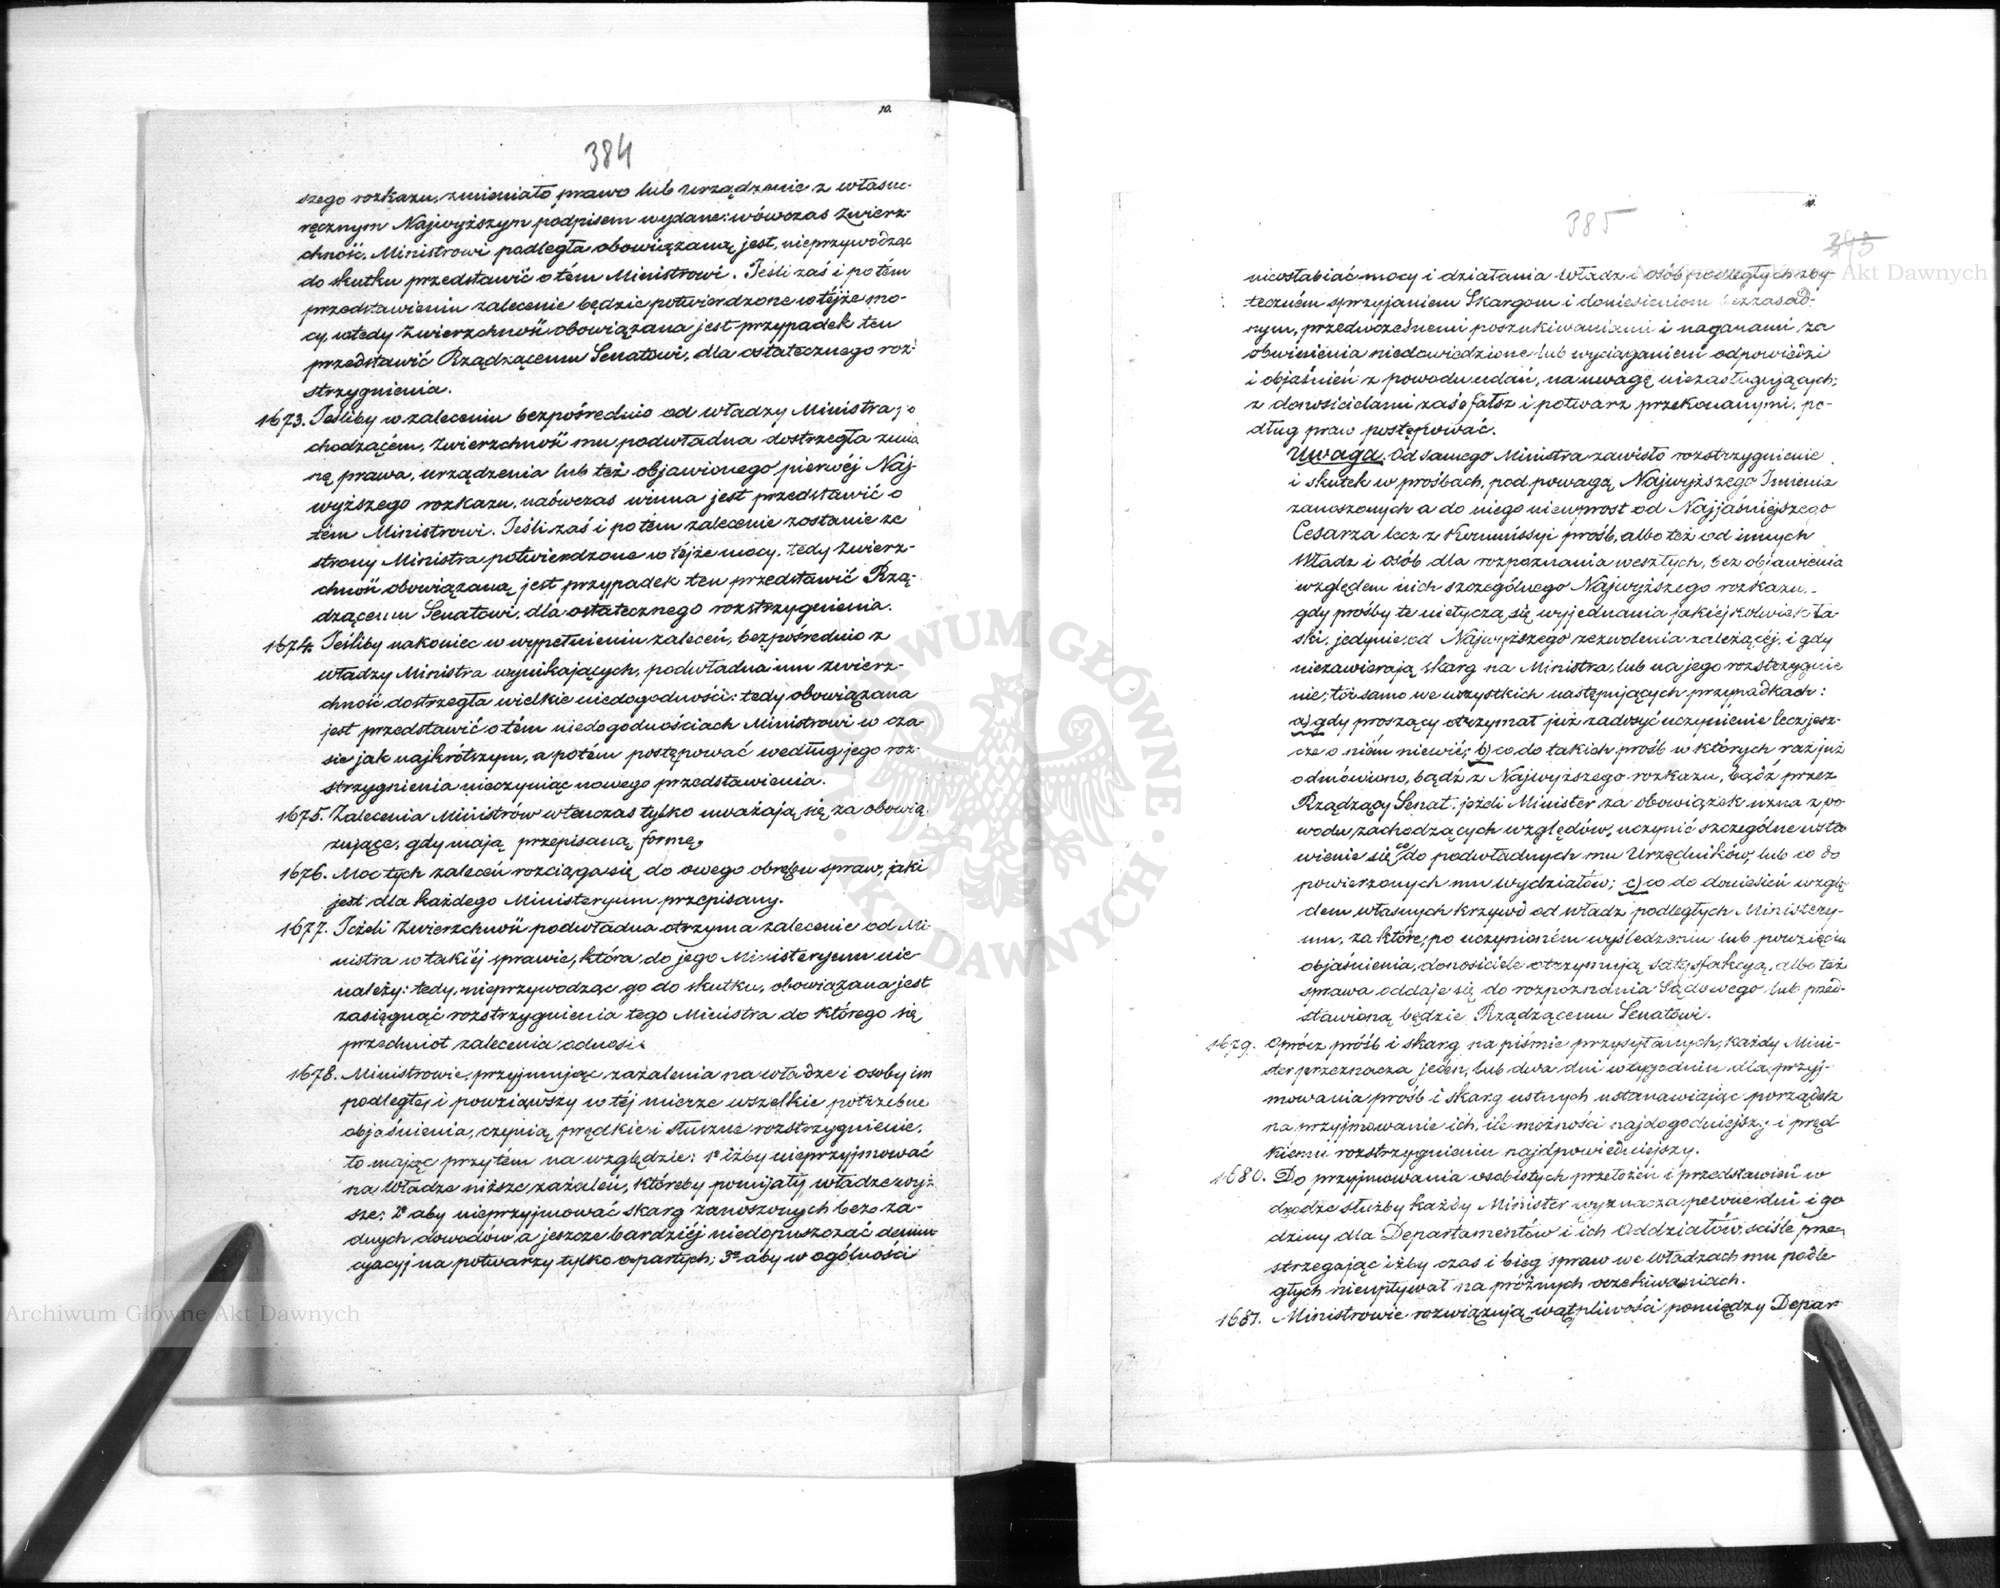 10.
384
szego rozkazu, zmieniało prawo lub urządzenie z własno-
ręcznym Najwyższym podpisem wydane: wówczas Zwierz-
chność, Ministrowi podległa obowiązaną jest, nieprzywodząc
do skutku przedstawić o tém Ministrowi. Jeśli zaś i po tém
przedstawieniu zalecenie będzie potwierdzone w téjże mo-
cy, wtedy Zwierzchność obowiązana jest przypadek ten
przedstawić Rządzącemu Senatowi, dla ostatecznego roz-
strzygnienia.
1673. Jeśliby w zaleceniu bezpośrednio od władzy Ministra po
chodzącém, Zwierzchność mu podwładna dostrzegła zmia
nę prawa, urządzenia lub też objawionego pierwéj Naj-
wyższego rozkazu, naówczas winna jest przedstawić o
tém Ministrowi. Jeśli zaś i po tém zalecenie zostanie ze
strony Ministra potwierdzone w téjże mocy, tedy Zwierz-
chność obowiązaną jest przypadek ten przedstawić Rzą-
dzącemu Senatowi, dla ostatecznego rozstrzygnienia.
1674. Jeśliby nakoniec w wypełnieniu zaleceń, bezpośrednio z
władzy Ministra wynikających, podwładna mu zwierz-
chność dostrzegła wielkie niedogodności: tedy obowiązana
jest przedstawić o tém niedogodnościach Ministrowi w cza-
sie jak najkrótszym, a potém postępować według jego roz-
strzygnienia nieczyniąc nowego przedstawienia.
1675. Zalecenia Ministrów wtenczas tylko uważają się za obowią
zujące, gdy mają przepisaną formę,
1676. Moc tych zaleceń rozciąga się do owego obrębu spraw, jaki
jest dla każdego Ministeryum przepisany.
1677. Jeżeli Zwierzchność podwładna otrzyma zalecenie od Mi-
nistra w takiéj sprawie, która do jego Ministeryum nie
należy: tedy, nieprzywodząc go do skutku, obowiązana jest
zasięgnąć rozstrzygnienia tego Ministra do którego się
przedmiot zalecenia odnosi.
1678. Ministrowie, przyjmując zażalenia na władze i osoby im
podległej i powziąwszy w tej mierze wszelkie potrzebne
objaśnienia, czynią prędkie i słuszne rozstrzygnienie,
to mając przytém na względzie: 1º iżby nieprzyjmować
na Władze niższe zażaleń, któreby pomijały władze wyż-
sze; 2º aby nieprzyjmować skarg zanoszonych bezo ża-
dnych dowodów a jeszcze bardziéj niedopuszczać denun-
cyacyj na potwarzy tylko opartych; 3º aby w ogólności
11.
385
393
nieosłabiać mocy i działania Władz i osób podległych zby-
teczném sprzyjaniem Skargom i doniesieniom bezzasad-
nym, przedwczesnemi poszukiwaniami i naganami za
obwinienia niedowiedzione lub wyciąganiem odpowiedzi
i objaśnień z powodu udań, na uwagę niezasługujących;
z donosicielami zaś o fałsz i potwarz przekonanymi, po-
dług praw postępować.
Uwaga. Od samego Ministra zawisło rozstrzygnienie
i skutek w prośbach, pod powagą Najwyższego Imienia
zanoszonych a do niego niewprost od Najjaśniejszego
Cesarza lecz z Kommissyi próśb, albo też od innych
Władz i osób dla rozpoznania weszłych, bez objawienia
względem nich szczególnego Najwyższego rozkazu,
gdy prośby te nietyczą się wyjednania jakiejkolwiek ła-
ski, jedynie od Najwyższego zezwolenia zależącéj, i gdy
niezawierają skarg na Ministra, lub na jego rozstrzygnie
nie; toż samo we wszystkich następujących przypadkach:
a) gdy proszący otrzymał już zadosyć uczynienie lecz jesz-
cze o niém niewié; b) co do takich próśb w których raz już
odmówiono, bądź z Najwyższego rozkazu, bądź przez
Rządzący Senat, jeżeli Minister za obowiązek uzna z po
wodu zachodzących względów, uczynić szczególne wsta
wienie się co do podwładnych mu Urzędników, lub co do
powierzonych mu wydziałów; c) co do doniesień wzglę-
dem własnych krzywd od władz podległych Ministery-
um, za które, po uczynioném wyśledzeniu lub powzięciu
objaśnienia, donosiciele otrzymują satysfakcyą, albo też
sprawa oddaje się do rozpoznania Sądowego lub przed-
stawioną będzie Rządzącemu Senatowi.
1679. Oprócz próśb i skarg na piśmie przysyłanych, każdy Mini-
ster przeznacza jeden, lub dwa dni w tygodniu dla przyj-
mowania próśb i skarg ustnych ustanawiając porządek
na przyjmowanie ich, ile możności najdogodniejszy i pręd-
kiemu rozstrzygnieniu najodpowiedniejszy.
1680. Do przyjmowania osobistych przełożeń i przedstawień w
drodze służby każdy Minister wyznacza pewne dni i go
dziny dla Departamentów i ich Oddziałów, ściśle prze-
strzegając iżby czas i bieg spraw we Władzach mu podle-
głych nieupływał na próżnych oczekiwaniach.
1681. Ministrowie rozwiązują wątpliwości pomiędzy Depar-
ARCHIWUM GŁÓWNE · AKT DAWNYCH ·
Archiwum Główne Akt Dawnych
Akt Dawnych